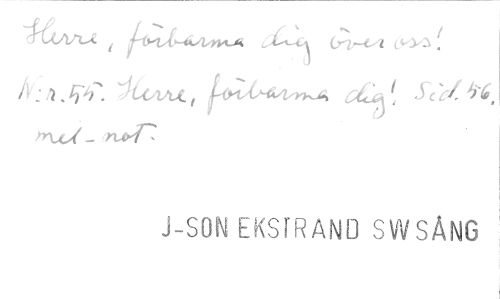 Herre, förbarma dig över oss!
N:r. 55. Herre, förbarma dig! Sid. 56.
mel-not.
J-SON EKSTRAND SWSÅNG